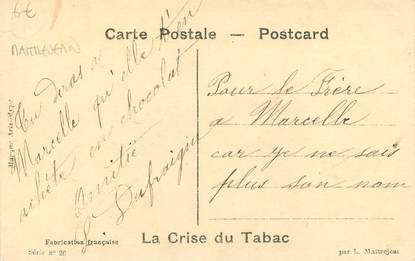 6€
MAITREJEAN
Carte Postale – Postcard
Tu diras à
Marcelle qu'elle t'en
achète en chocolat
Amitié
Dufraigne
Pour le Frère
a Marcelle
car je ne sais
plus son nom
Marque Aristotype
Fabrication française
Série n° 26
La Crise du Tabac
par L. Maitrejean